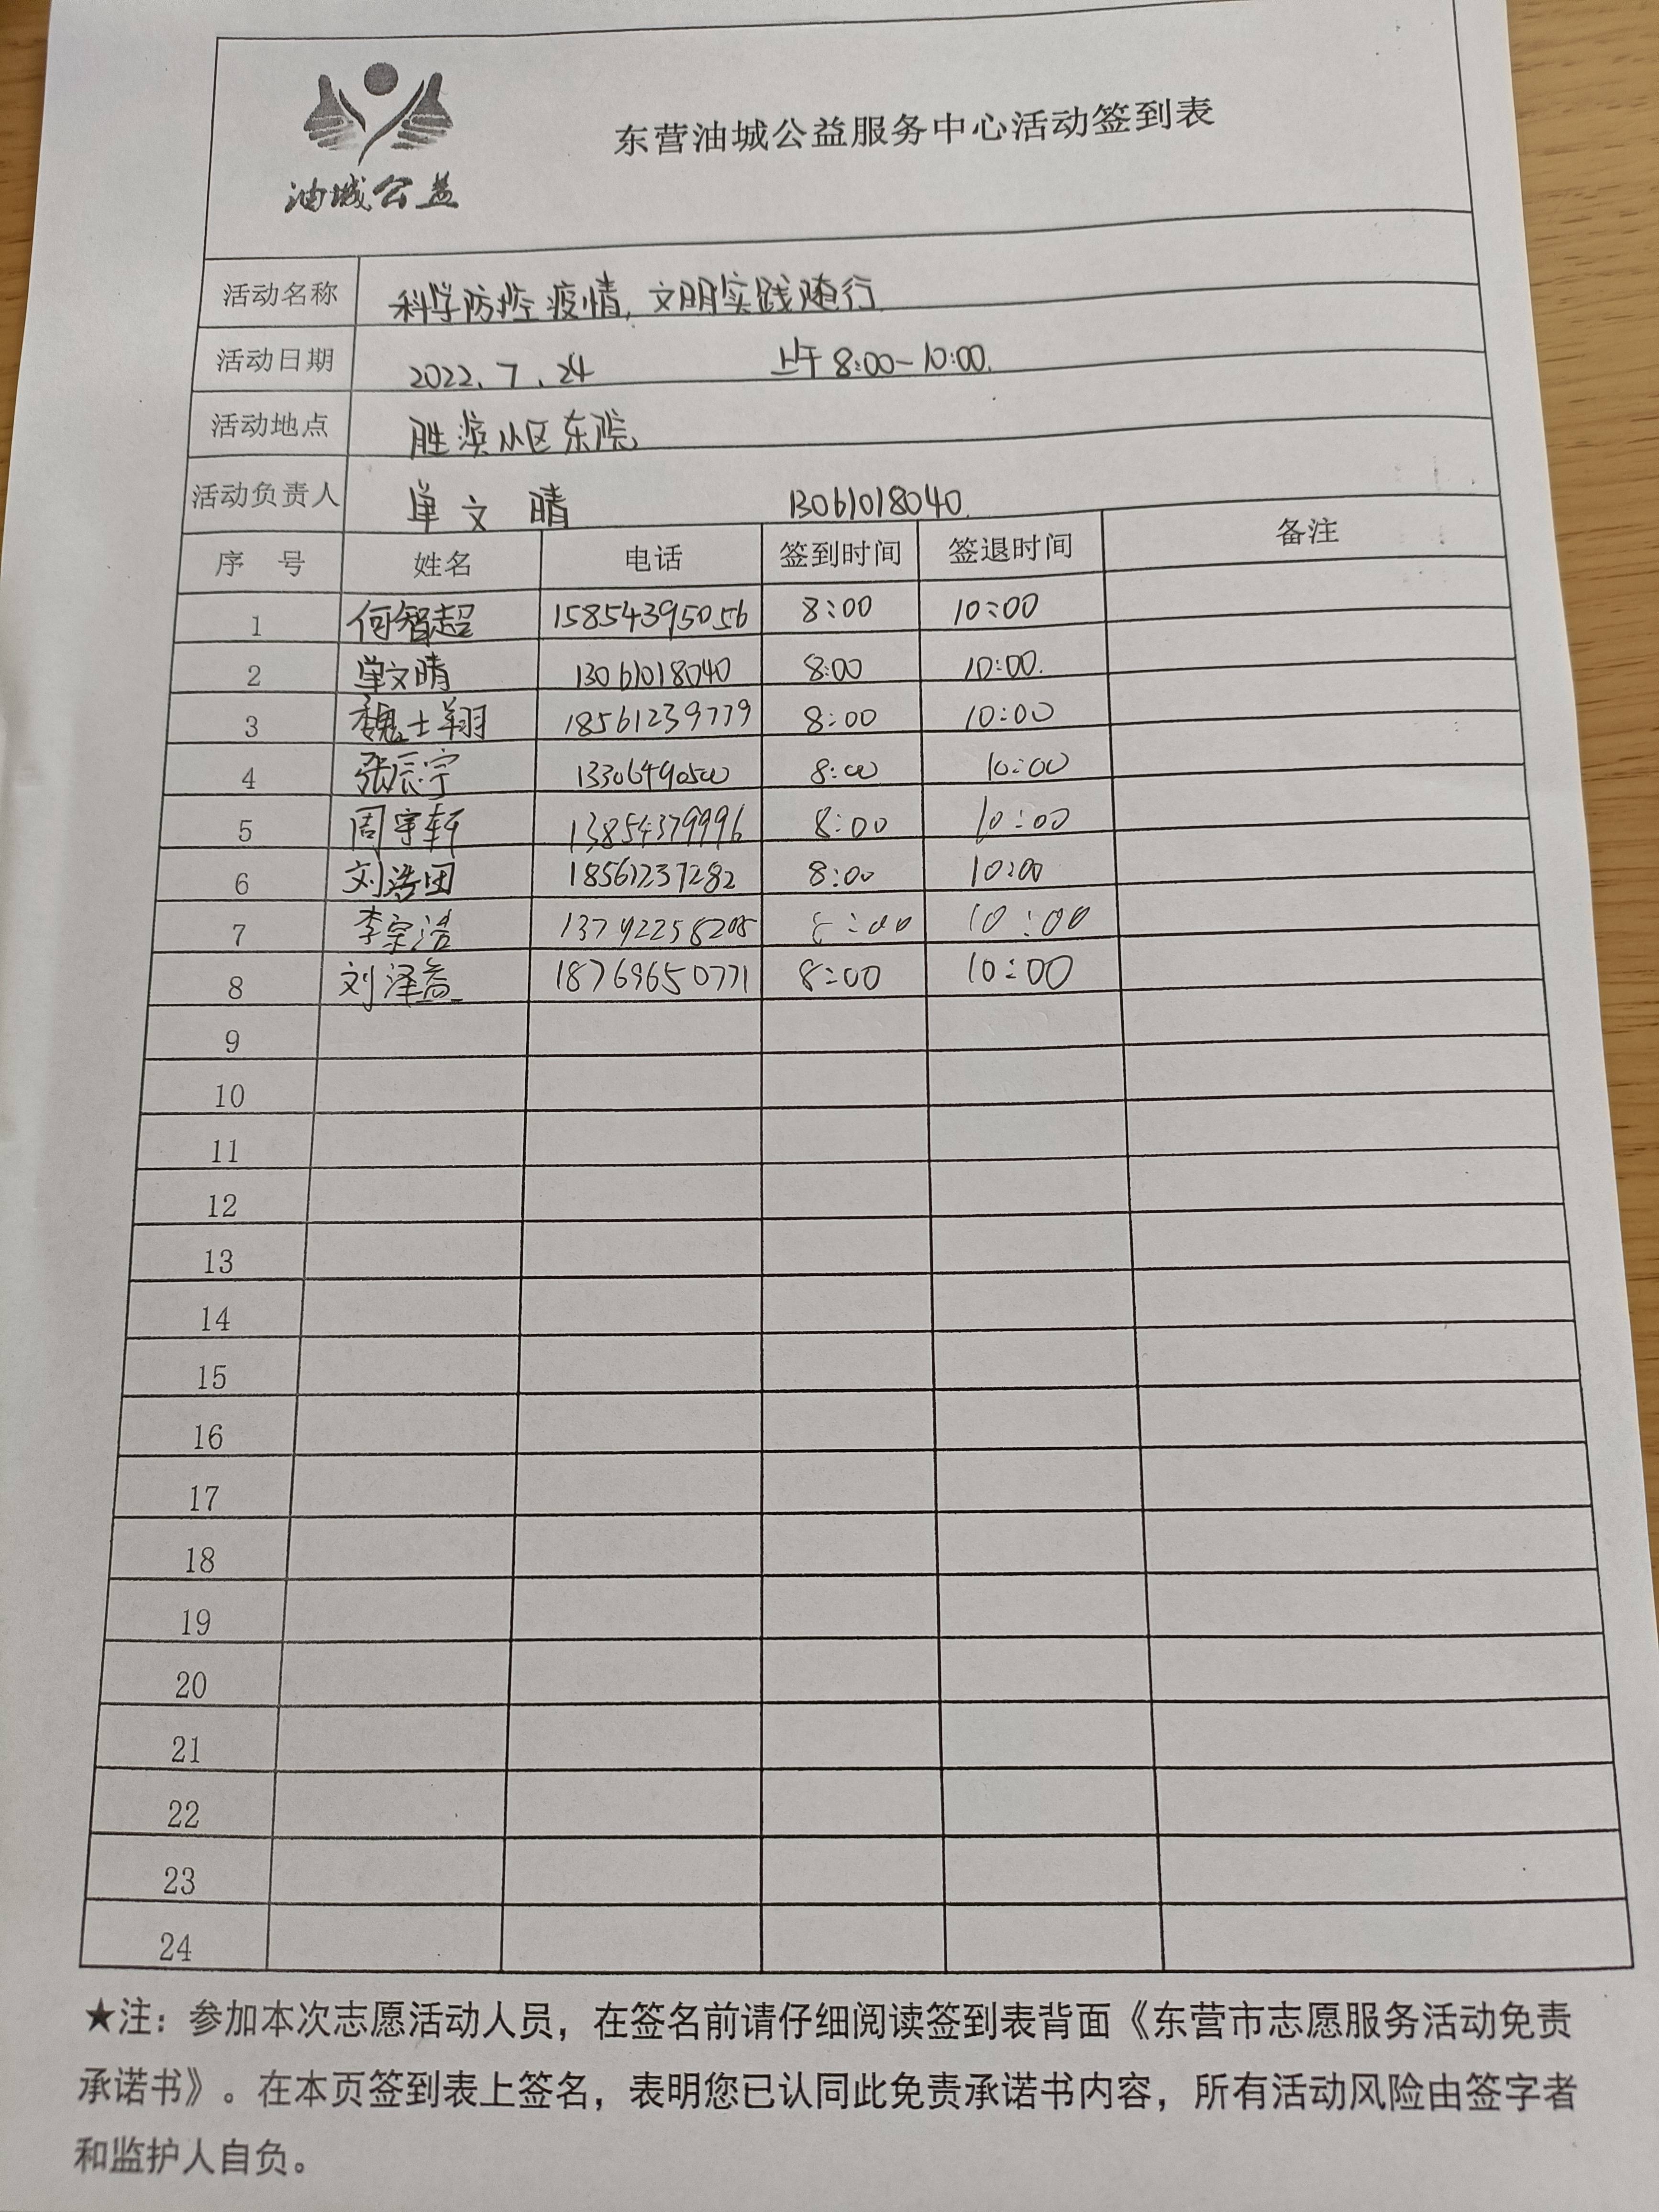 油城公益
东营油城公益服务中心活动签到表
活动名称 科学防控疫情,文明实践随行
活动日期 2022.7.24 上午8:00-10:00.
活动地点 胜滨小区东院
活动负责人 单文晴 13061018040.
序 号 姓名 电话 签到时间 签退时间 备注
1 何智超 15854395056 8:00 10:00
2 单文晴 13061018040 8:00 10:00.
3 魏士翔 18561239779 8:00 10:00
4 张辰宁 13306490500 8:00 10:00
5 周宇轩 13854379996 8:00 10:00
6 刘浩田 18561237282 8:00 10:00
7 李宗浩 8:00 10:00
8 刘泽益 18769650771 8:00 10:00
9
10
11
12
13
14
15
16
17
18
19
20
21
22
23
24
★注：参加本次志愿活动人员，在签名前请仔细阅读签到表背面《东营市志愿服务活动免责
承诺书》。在本页签到表上签名，表明您已认同此免责承诺书内容，所有活动风险由签字者
和监护人自负。